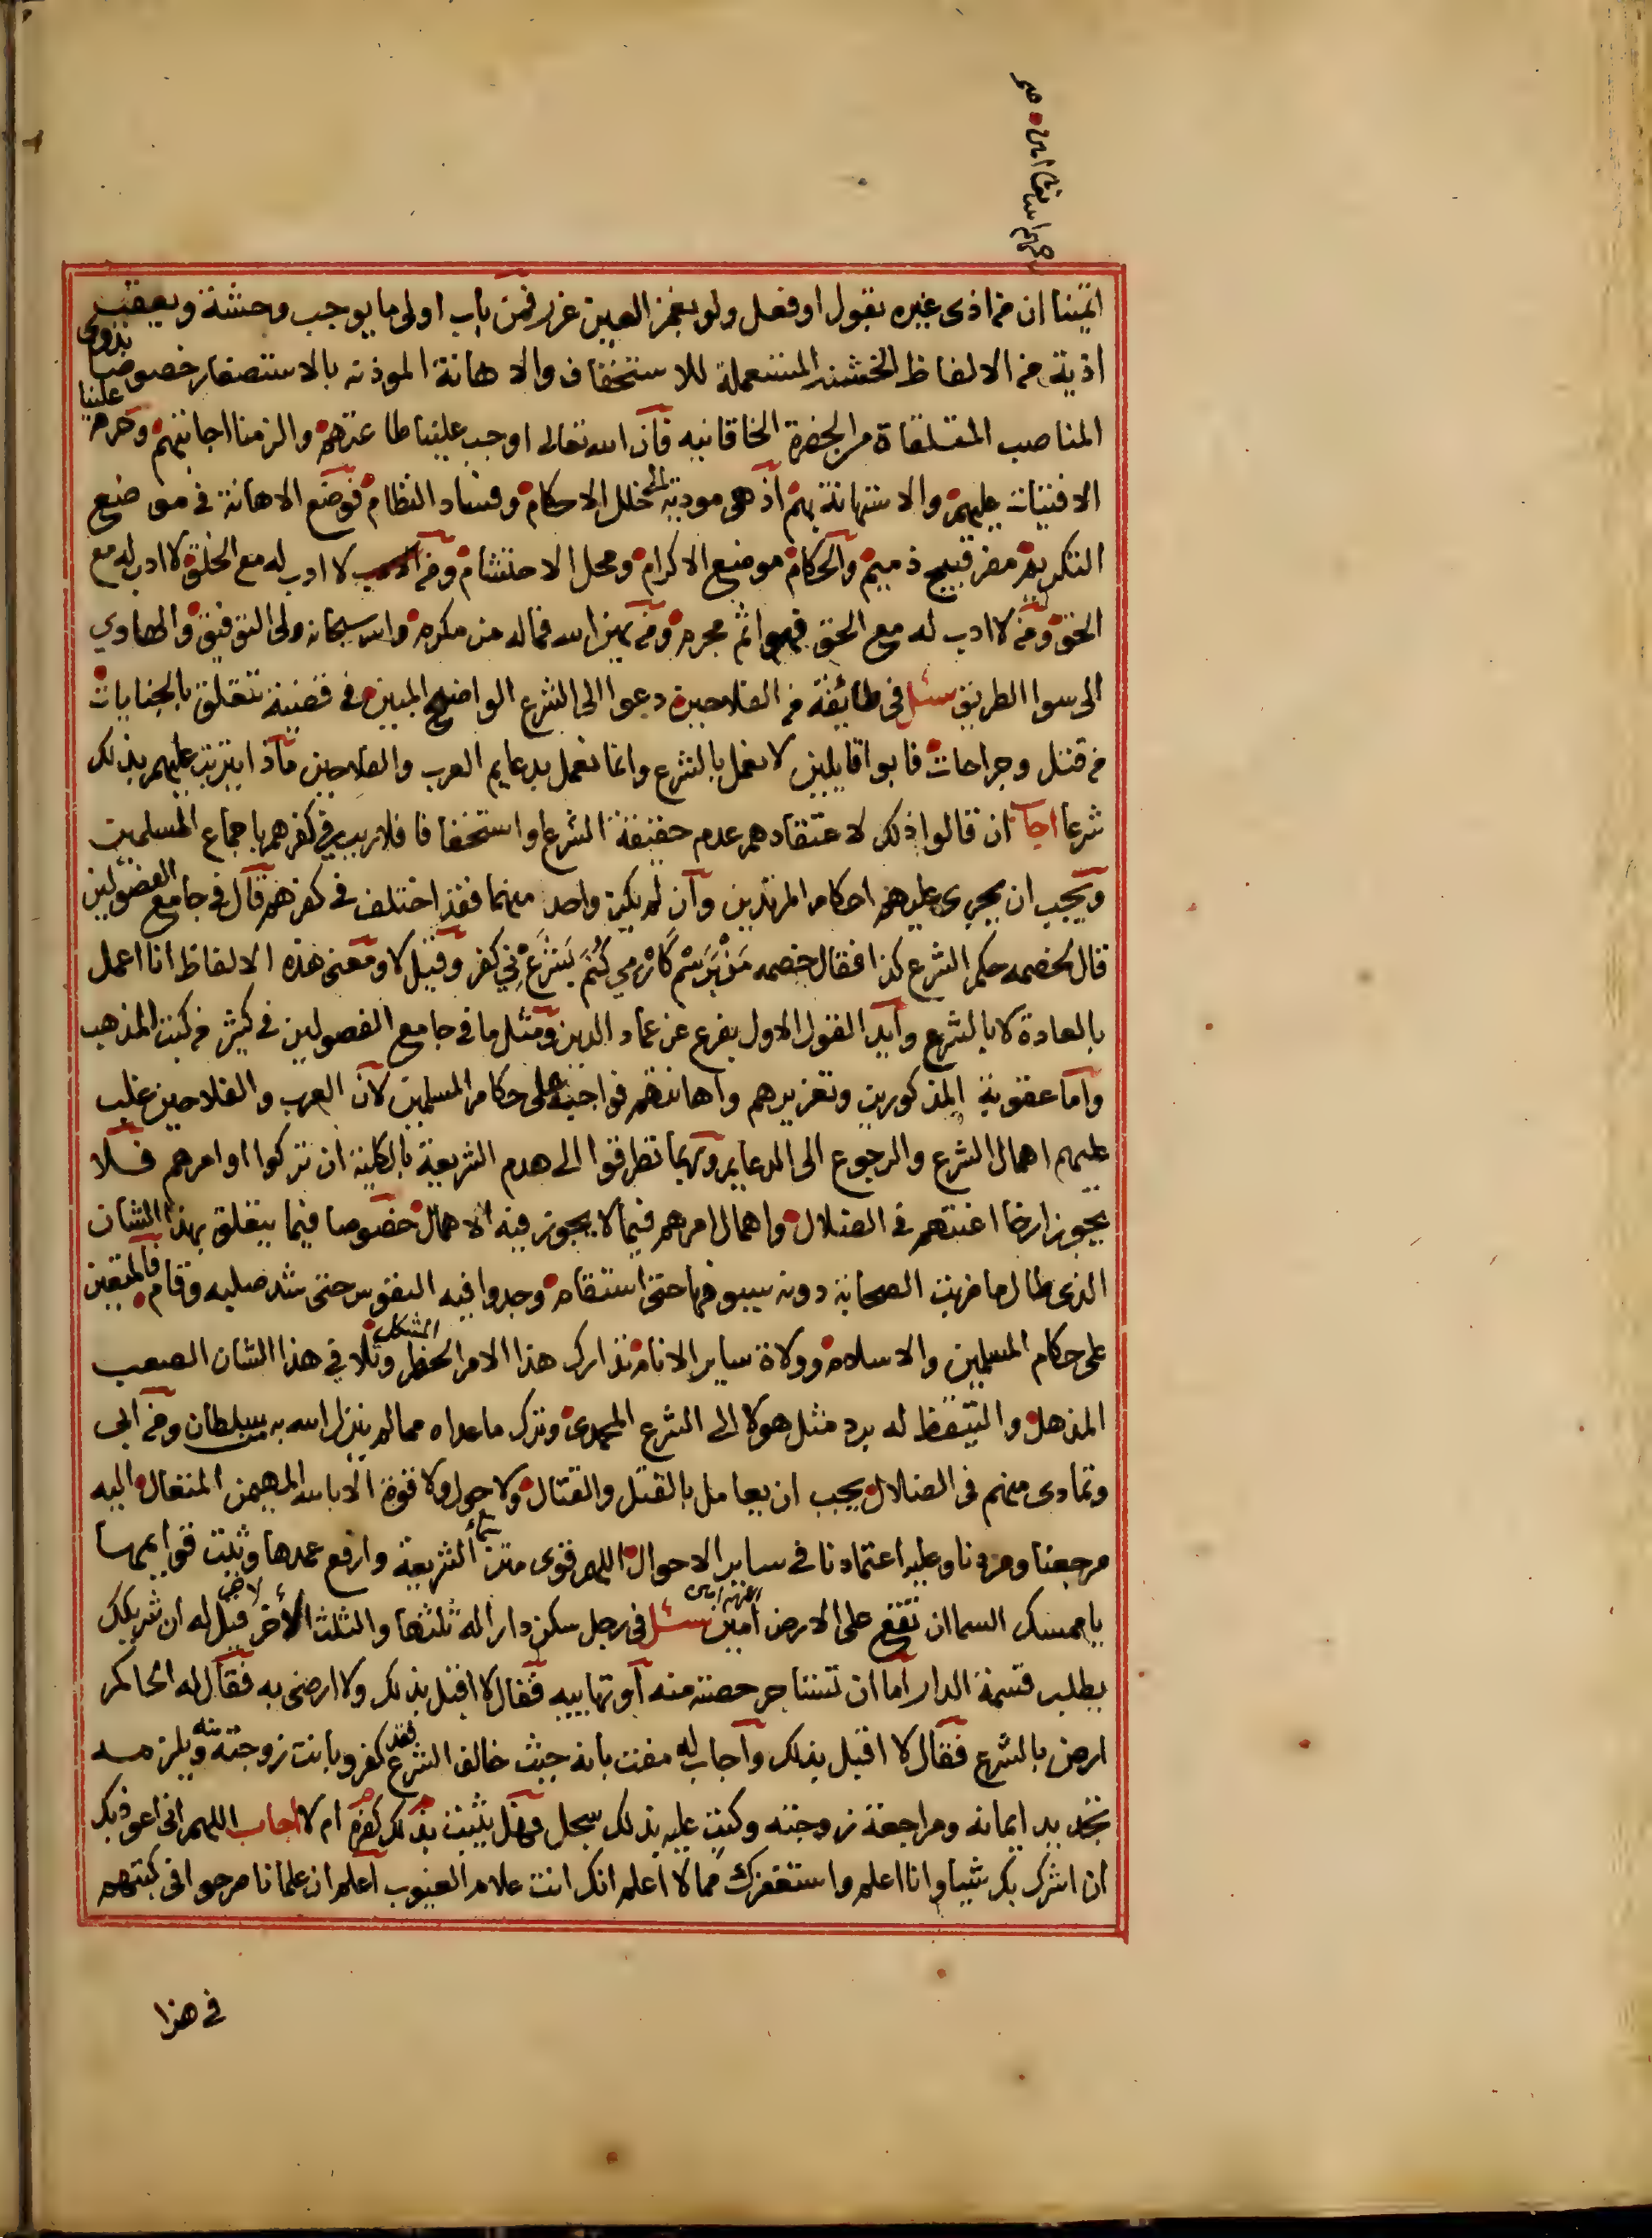 ائمتنا ان من اذى غيره بقول او فعل ولو بغمز العين عزر فمن باب اولى ما يوجب وحشة ويعقب
اذية من الالفاظ الخشنة المستعملة للاستخفاف والاهانة الموذنة بالاستصغار خصوصا بذوى
المناصب المتلقاة من الحضرة الخاقانيه فان الله تعالى اوجب علينا طاعتهم والزمنا اجابتهم وحرم علينا
الافتيات عليهم والاستهانة بهم اذ هو مودية الى خلل الاحكام وفساد النظام فوضع الاهانة في موضع
التكريم مضر قبيح ذميم والحكام موضع الاكرام ومحل الاحتشام ومن لا ادب له مع الخلق لا ادب له مع
الحق ومن لا ادب له مع الحق فهو اثم مجرم ومن يهن الله فماله من مكرم والله سبحانه ولى التوفيق والهادي
الى سوا الطريق سئل في طائفة من الفلاحين دعوا الى الشرع الواضح المبين في قضية تتعلق بالجنايات
من قتل وجراحات فابوا قايلين لا نعمل بالشرع وانما نعمل بدعايم العرب والفلاحين ماذا يترتب عليهم بذلك
شرعا اجاب ان قالوا ذلك لاعتقادهم عدم حقيقة الشرع او استخفافا فلا ريب في كفرهم باجماع المسلمين
ويجب ان يجرى عليهم احكام المرتدين وان لم يكن واحد منهما فقد اختلف في كفرهم قال في جامع الفصولين
قال لخصمه حكم الشرع كذا فقال خصمه من برسم كار مي كنم بشرع ني كفر وقيل لا ومعنى هذه الالفاظ انا اعمل
بالعادة لا بالشرع وايد القول الاول بفرع عن عماد الدين ومثل ما في جامع الفصولين في كثير من كتب المذهب
واما عقوبة المذكورين وتعزيرهم واهانتهم فواجبة على حكام المسلمين لان العرب والفلاحين غلب
عليهم اهمال الشرع والرجوع الى الدعايم وربما تطرقوا الى هدم الشريعة بالكلية ان تركوا اوامرهم فلا
يجوز ارخا اعنتهم في الضلال واهمال امرهم فيما لا يجوز فيه الاهمال خصوصا فيما يتعلق بهذا الشان
الذى طالما ضربت الصحابة دونه بسيوفها حتى استقام وجدوا فيه النفوس حتى شد صلبه وقام فالمتعين
على حكام المسلمين والاسلام وولاة ساير الانام تدارك هذا الامر الخطر المشكل وتلا في هذا الشان الصعب
المذهل والتيقظ له برد مثل هولا الى الشرع المحمدى وترك ما عداه مما لم ينزل الله به سلطان ومن ابى
وتمادى منهم في الضلال يجب ان يعامل بالقتل والقتال ولا حول ولا قوة الا بالله المهيمن المتعال اليه
مرجعنا ومردنا وعليه اعتمادنا في ساير الاحوال اللهم قوى متن الشريعة وارفع عمدها وثبت قوايمها
يا ممسك السما ان تقع على الارض امين سئل في رجل سكن دارا له ثلثها والثلث الاخر لاخر قيل له ان شريكك
يطلب قسمة الدار اما ان تستاجر حصته منه او تهاييه فقال لا اقبل بذلك ولا ارضى به فقال له الحاكم
ارض بالشرع فقال لا اقبل بذلك واجاب له مفت بانه حيث خالف الشرع فقد كفر وبانت زوجته منه ويلزمه
تجديد ايمانه ومراجعة زوجته وكتب عليه بذلك سجل فهل يثبت بذلك كفره ام لا اجاب اللهم انى اعوذ بك
ان اشرك بك شيا وانا اعلم واستغفرك مما لا اعلم انك انت علام الغيوب اعلم ان علمانا صرحوا في كتبهم
في هذا